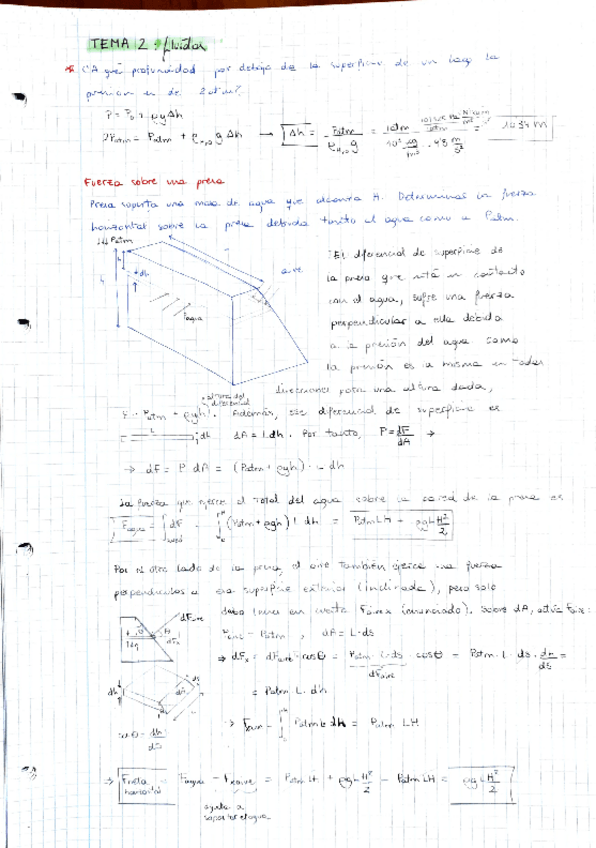 TEMA 2: fluidos
¿A qué profundidad por debajo de la superficie de un lago la
presión es de 2 atm?
P = P₀ + ρgΔh
2Patm = Patm + ρH₂O g Δh → Δh = Patm / ρH₂O g = 1 atm
Fuerza sobre una presa
Presa soporta una masa de agua que alcanza H. Determinar la fuerza
horizontal sobre la presa debida tanto al agua como a Patm.
Patm
h
dh
aire
Fagua
El diferencial de superficie de
la presa que está en contacto
con el agua, sufre una fuerza
perpendicular a ella debida
a la presión del agua como
la presión es la misma en todas
direcciones para una altura dada,
altura del
diferencial
Patm + ρgh. Además, ese diferencial de superficie es
L
dh dA = L dh. Por tanto, P = dF/dA →
→ dF = P dA = (Patm + ρgh) · L dh
La fuerza que ejerce el total del agua sobre la pared de la presa es
Fagua = ∫ dF = ∫ (Patm + ρgh) L dh = Patm LH + ρgL H²/2
Por el otro lado de la presa, el aire también ejerce una fuerza
perpendicular a esa superficie exterior (inclinada), pero solo
debo tener en cuenta Faire x Sobre dA, actúa Faire:
dFaire
θ
dFx
Patm, dA = L·ds
→ dFx = dFaire · cosθ = Patm · L · ds · cosθ = Patm · L · ds · dh/ds =
dFaire
= Patm · L · dh
dh
ds
dA
cosθ = dh/ds
→ Faire = ∫ Patm L dh = Patm LH
→ Fneta horizontal = Fagua − Fxaire = Patm LH + ρgL H²/2 − Patm LH = ρgL H²/2
ayuda a
soportar el agua